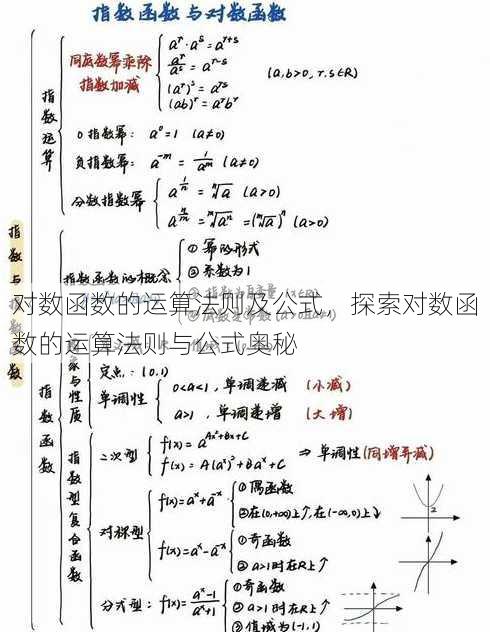 指数函数与对数函数
同底数幂乘除
指数加减
a^r·a^s=a^{r+s}
a^r/a^s=a^{r-s}
(a^r)^s=a^{rs}
(ab)^r=a^r b^r
(a,b>0,r.s∈R)
指数运算
0指数幂: a^0=1 (a≠0)
负指数幂: a^{-m}=1/a^m (a≠0)
分数指数幂
a^{1/n}=ⁿ√a (a>0)
指数与
函数
指数函数的概念
①幂的形式
②系数为1
对数函数的运算法则及公式，探索对数函
数的运算法则与公式奥秘
与性质
定点:(0,1)
单调性
0<a<1,单调递减 (小减)
a>1,单调递增 (大增)
指数函数
指数型复合函数
二次型
f(x)=a^{Ax²+Bx+C}
f(x)=A(a^x)²+Ba^x+C
⇒单调性(同增异减)
对称型
f(x)=a^x+a^{-x}
①偶函数
②在(0,+∞)上↑,在(-∞,0)上↓
f(x)=a^x-a^{-x}
①奇函数
②a>1时在R上↑
分式型: f(x)=(a^x-1)/(a^x+1)
①奇函数
②a>1时在R上↑
③值域为(-1,1)
2